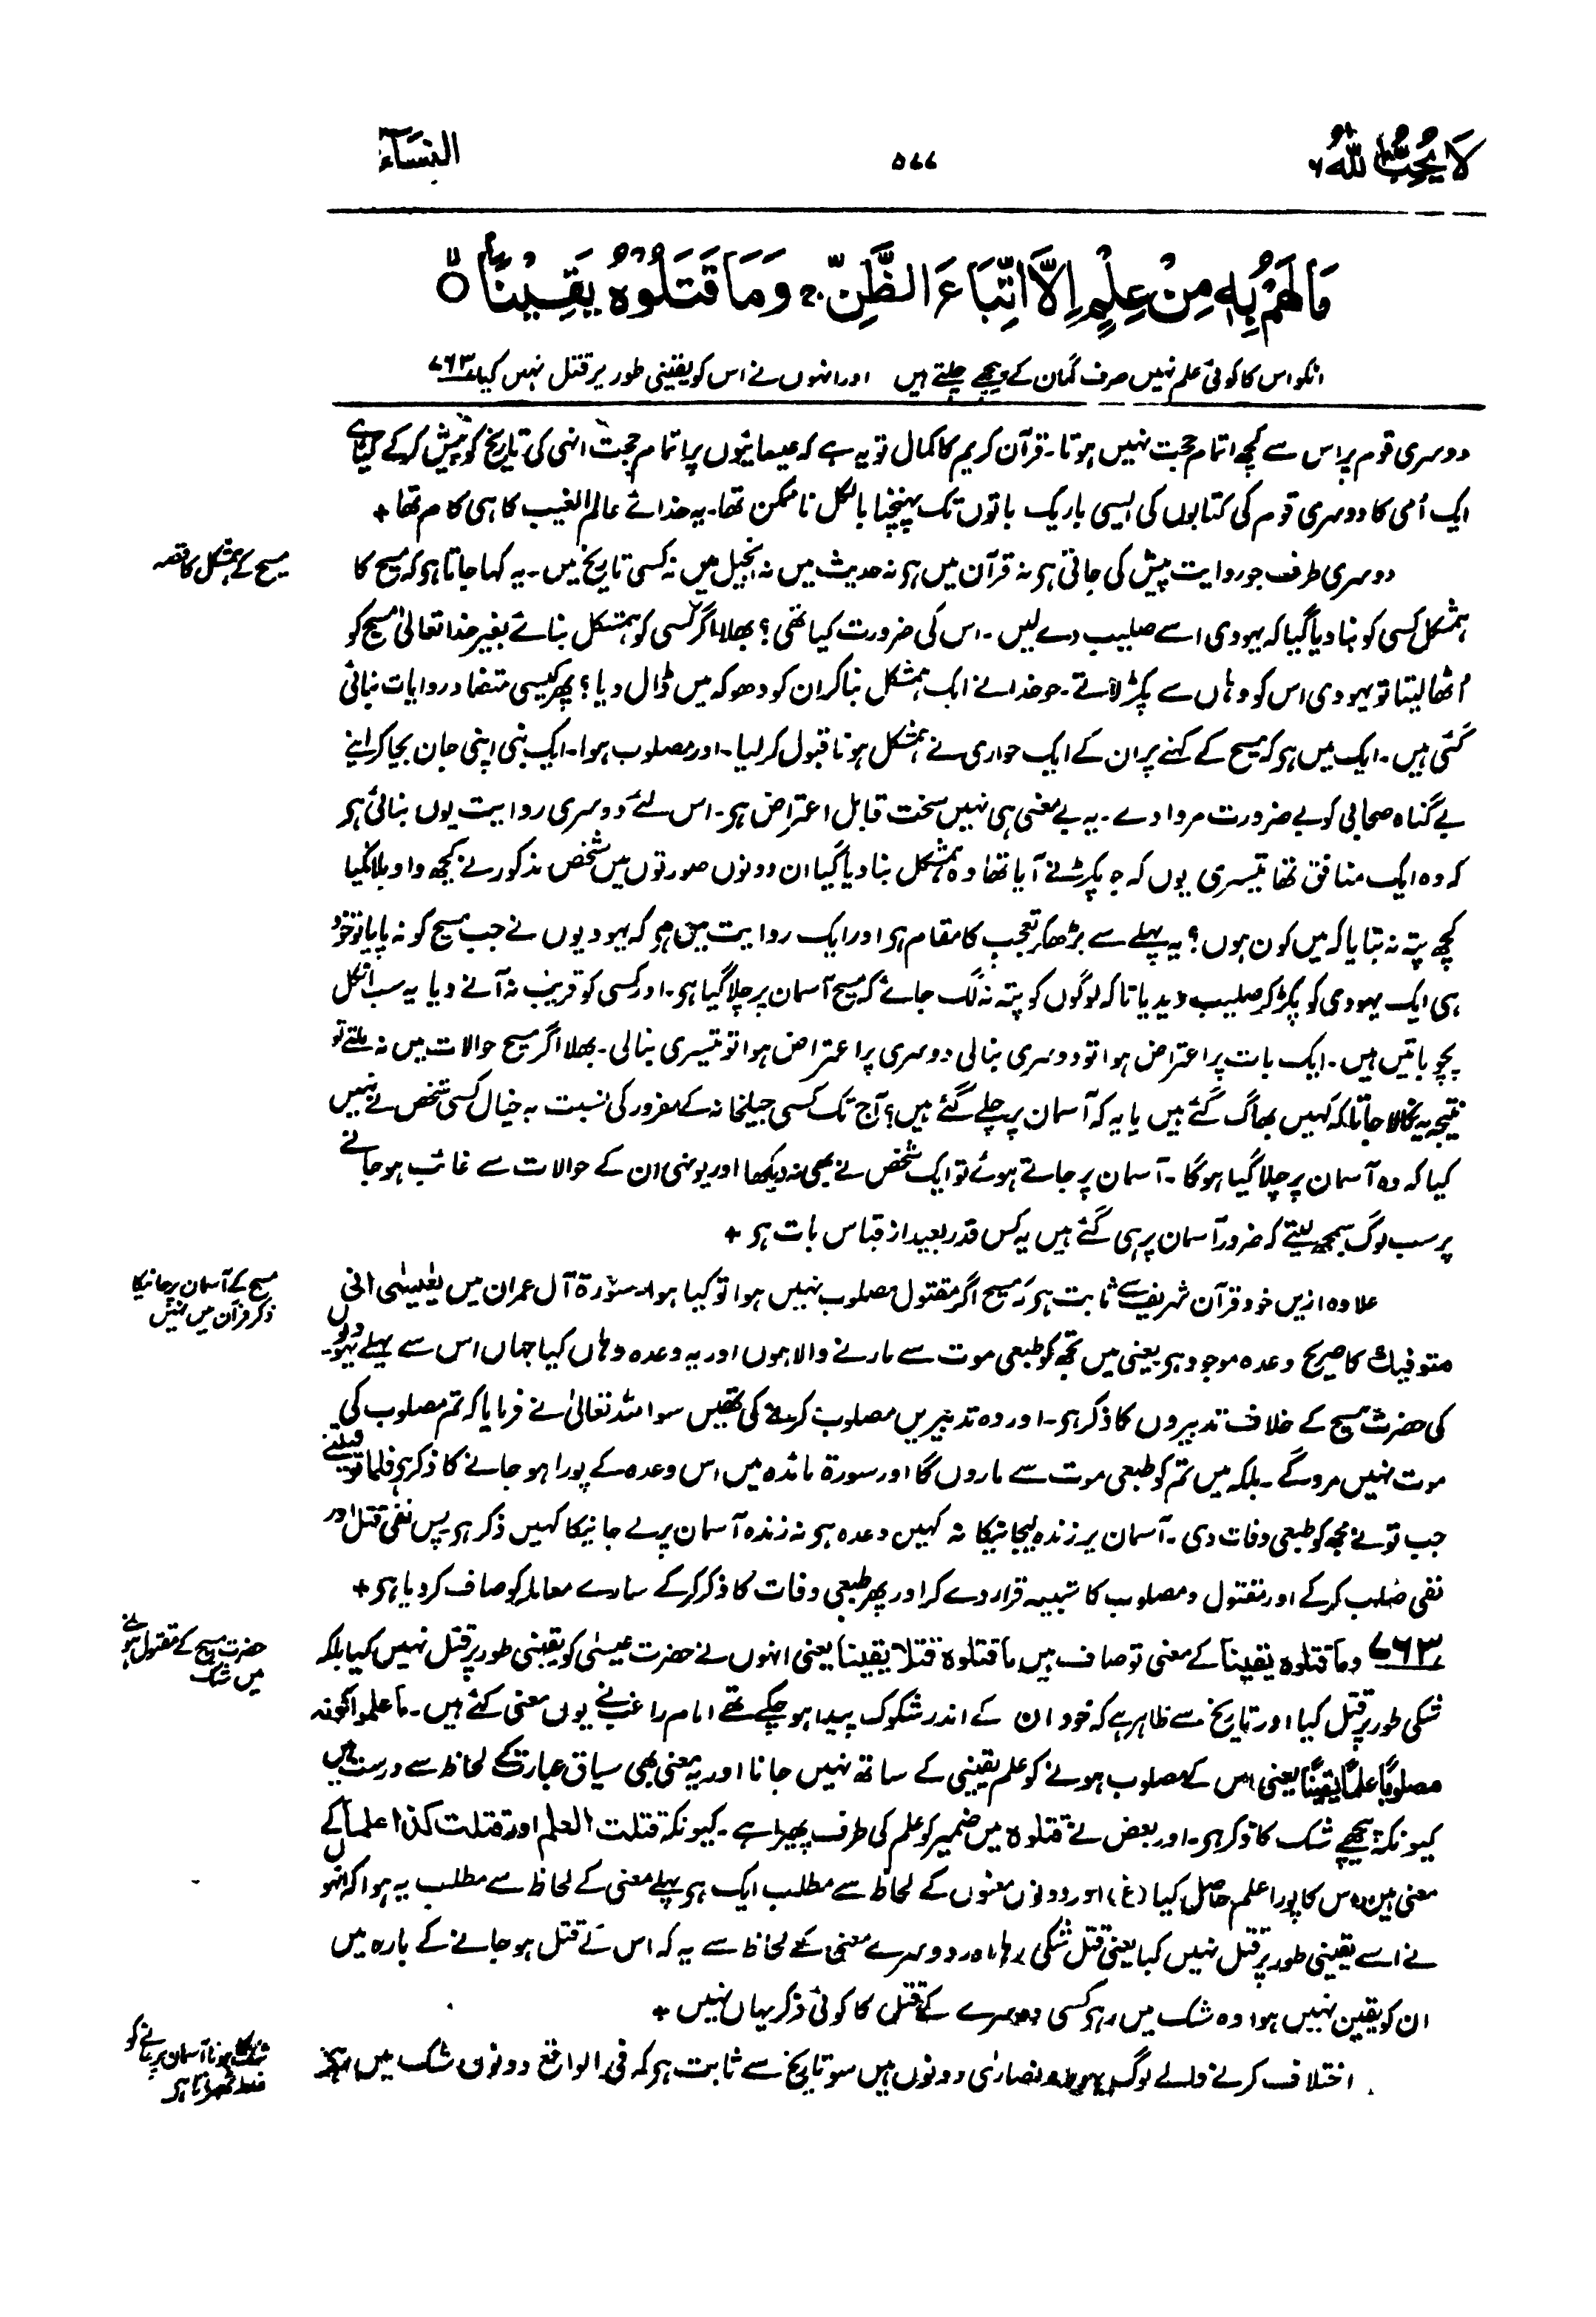 لَا يُحِبُّ اللهُ ٦
٥٧٧
النِّسَآء
مَا لَهُمْ بِهٖ مِنْ عِلْمٍ اِلَّا اتِّبَاعَ الظَّنِّ ۚ وَمَا قَتَلُوْهُ يَقِيْنًا ۙ
انکو اس کا کوئی علم نہیں صرف گمان کے پیچھے چلتے ہیں اور انہوں نے اس کو یقینی طور پر قتل نہیں کیا ٧٦٣
دوسری قوم پر اس سے کچھ اتمام حجت نہیں ہوتا۔ قرآن کریم کا کمال تو یہ ہے کہ عیسائیوں پر اتمام حجت انہی کی تاریخ کو پیش کرکے کیا ہے
ایک اُمی کا دوسری قوم کی کتابوں کی ایسی باریک باتوں تک پہنچنا بالکل ناممکن تھا۔ یہ خدائے عالم الغیب کا ہی کام تھا +
مسیح کے ہمشکل کا قصہ
دوسری طرف جو روایت پیش کی جاتی ہو نہ قرآن میں ہو نہ حدیث میں نہ انجیل میں نہ کسی تاریخ میں۔ یہ کہا جاتا ہو کہ مسیح کا
ہمشکل کسی کو بنا دیا گیا کہ یہودی اسے صلیب دے لیں۔ اس کی ضرورت کیا تھی؟ بھلا اگر کسی کو ہمشکل بنائے بغیر خدا تعالیٰ مسیح کو
اُٹھا لیتا تو یہودی اس کو وہاں سے پکڑ لاتے۔ جو خدا نے ایک ہمشکل بنا کر ان کو دھوکہ میں ڈال دیا؟ پھر کیسی متضاد روایات بنائی
گئی ہیں۔ ایک میں ہو کہ مسیح کے کہنے پر ان کے ایک حواری نے ہمشکل ہونا قبول کر لیا۔ اور مصلوب ہوا۔ ایک نبی اپنی جان بچا کر اپنے
بے گناہ صحابی کو بے ضرورت مروا دے۔ یہ بے معنی ہی نہیں سخت قابل اعتراض ہو۔ اس لئے دوسری روایت یوں بنائی ہو
کہ وہ ایک منافق تھا تیسری یوں کہ جو پکڑنے آیا تھا وہ ہمشکل بنا دیا گیا ان دونوں صورتوں میں شخص مذکور نے کچھ واویلا نہ کیا
کچھ پتہ نہ بتایا کہ میں کون ہوں؟ یہ پہلے سے بڑھ کر تعجب کا مقام ہو اور ایک روایت میں ہو کہ یہودیوں نے جب مسیح کو نہ پایا تو خود
ہی ایک یہودی کو پکڑ کر صلیب دیدیا تاکہ لوگوں کو پتہ نہ لگ جائے کہ مسیح آسمان پر چلا گیا ہو۔ اور کسی کو قریب نہ آنے دیا یہ سب اٹکل
پچو باتیں ہیں۔ ایک بات پر اعتراض ہوا تو دوسری بنالی دوسری پر اعتراض ہوا تو تیسری بنالی۔ بھلا اگر مسیح حوالات میں نہ ملتے تو
نتیجہ یہ نکالا جاتا کہ کہیں بھاگ گئے ہیں یا یہ کہ آسمان پر چلے گئے ہیں؟ آج تک کسی جیلخانہ کے مفرور کی نسبت یہ خیال کسی شخص نے نہیں
کیا کہ وہ آسمان پر چلا گیا ہوگا۔ آسمان پر جاتے ہوئے تو ایک شخص نے بھی نہ دیکھا اور یونہی ان کے حوالات سے غائب ہو جانے
پر سب لوگ سمجھ لیتے کہ ضرور آسمان پر ہی گئے ہیں یہ کس قدر بعید از قیاس بات ہو +
مسیح کے آسمان پر جانیکا
ذکر قرآن میں نہیں
علاوہ ازیں خود قرآن شریف سے ثابت ہو کہ مسیح اگر مقتول مصلوب نہیں ہوا تو کیا ہوا۔ سورۃ آل عمران میں یٰعیسٰی انی
متوفیك کا صریح وعدہ موجود ہو یعنی میں تجھ کو طبعی موت سے مارنے والا ہوں اور یہ وعدہ وہاں کیا جہاں اس سے پہلے یہودیوں
کی حضرت مسیح کے خلاف تدبیروں کا ذکر ہو۔ اور وہ تدبیریں مصلوب کرنے کی تھیں سو اللہ تعالیٰ نے فرمایا کہ تم مصلوب کی
موت نہیں مرو گے۔ بلکہ میں تم کو طبعی موت سے ماروں گا اور سورۃ مائدہ میں اس وعدہ کے پورا ہو جانے کا ذکر ہو فلما توفیتنی
جب تو نے مجھ کو طبعی وفات دی۔ آسمان پر زندہ لیجانیکا نہ کہیں وعدہ ہو نہ زندہ آسمان پر لے جانیکا کہیں ذکر ہو پس نفی قتل اور
نفی صلب کرکے اور مقتول و مصلوب کا شبیہ قرار دے کر اور پھر طبعی وفات کا ذکر کرکے سارے معاملہ کو صاف کر دیا ہو +
حضرت مسیح کے مقتول ہونے
میں شک
٧٦٣ وما قتلوہ یقینا کے معنی تو صاف ہیں ما قتلوہ قتلا یقینا یعنی انہوں نے حضرت عیسٰی کو یقینی طور پر قتل نہیں کیا بلکہ
شکی طور پر قتل کیا اور تاریخ سے ظاہر ہے کہ خود ان کے اندر شکوک پیدا ہو چکے تھے امام راغب نے یوں معنی کئے ہیں۔ ما علموا کونہ
مصلوبًا علمًا یقینًا یعنی اس کے مصلوب ہونے کو علم یقینی کے ساتھ نہیں جانا اور یہ معنی بھی سیاق عبارت کے لحاظ سے درست ہیں
کیونکہ پیچھے شک کا ذکر ہو۔ اور بعض نے قتلوہ میں ضمیر کو علم کی طرف پھیرا ہے۔ کیونکہ قتلت العلم اور قتلت کذا علما کے
معنی ہیں اس کا پورا علم حاصل کیا (غ) اور دونوں معنوں کے لحاظ سے مطلب ایک ہو پہلے معنی کے لحاظ سے مطلب یہ ہوا کہ انہوں
نے اسے یقینی طور پر قتل نہیں کیا یعنی قتل شکی رہا اور دوسرے معنی کے لحاظ سے یہ کہ اس کے قتل ہو جانے کے بارہ میں
ان کو یقین نہیں ہوا وہ شک میں رہو کسی دوسرے کے قتل کا کوئی ذکر یہاں نہیں +
آسمان پر جانے کو
غلط ٹھہراتا ہو
اختلاف کرنے والے لوگ یہود و نصارٰی دونوں ہیں سو تاریخ سے ثابت ہو کہ فی الواقع دونوں شک میں